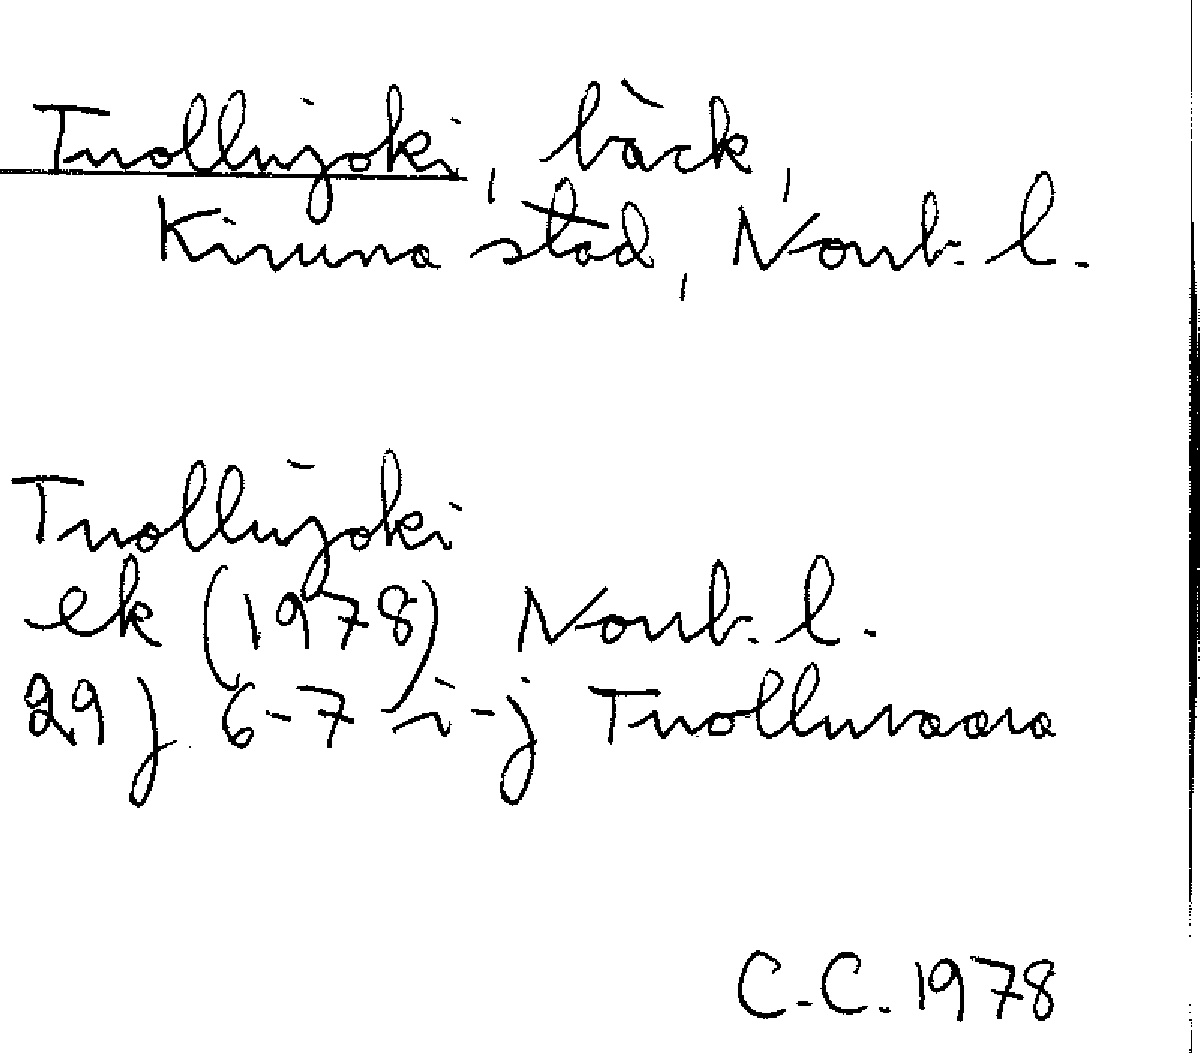 Tuollujoki, bäck,
Kiruna stad, Norrb. l.
Tuollujoki
ek (1978) Norrb. l.
29 J 6-7 i-j Tuolluvaara
C.C. 1978